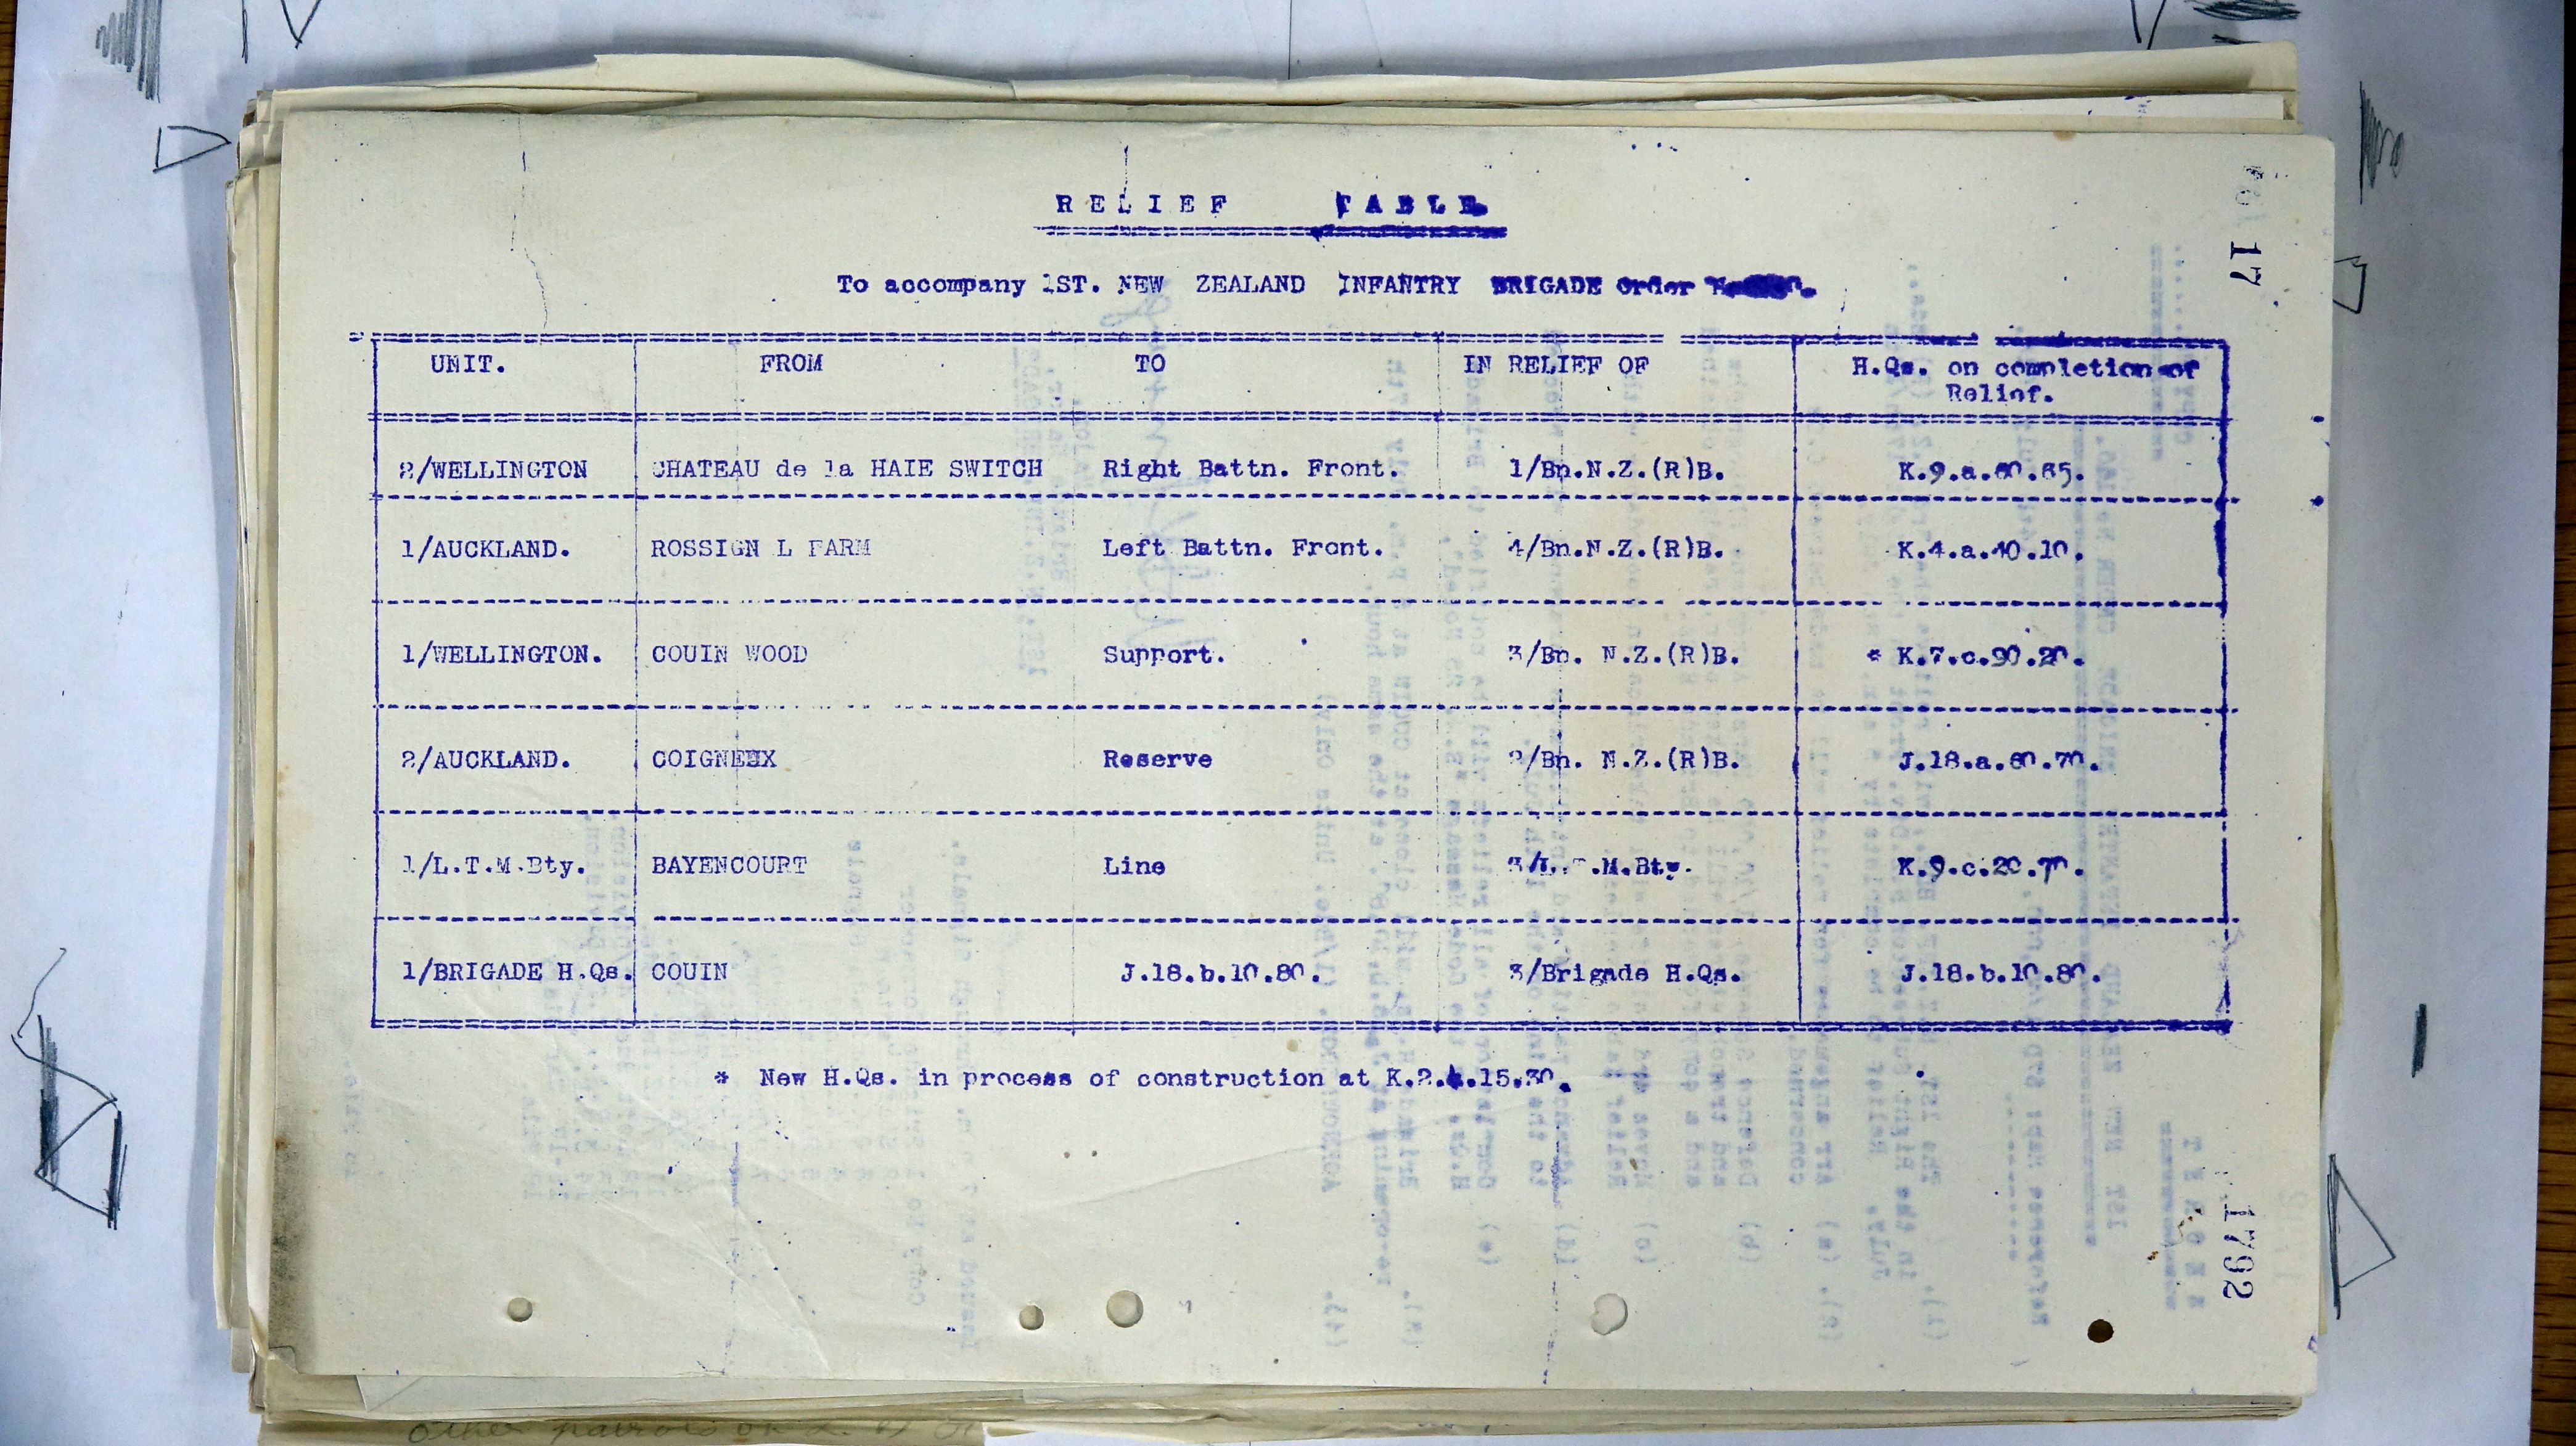 RELIEF TABLE
To accompany 1ST. NEW ZEALAND INFANTRY BRIGADE Order
UNIT. FROM TO IN RELIEF OF H.Qs. on completion of
Relief.
2/WELLINGTON CHATEAU de la HAIE SWITCH Right Battn. Front. 1/Bn.N.Z.(R)B. K.9.a.60.65.
1/AUCKLAND. ROSSIGN L FARM Left Battn. Front. 4/Bn.N.Z.(R)B. K.4.a.40.10.
1/WELLINGTON. COUIN WOOD Support. 3/Bn. N.Z.(R)B. * K.7.c.90.20.
2/AUCKLAND. COIGNEUX Reserve 2/Bn. N.Z.(R)B. J.18.a.60.70.
1/L.T.M.Bty. BAYENCOURT Line 3/L.T.M.Bty. K.9.c.20.70.
1/BRIGADE H.Qs. COUIN J.18.b.10.80. 3/Brigade H.Qs. J.18.b.10.80.
* New H.Qs. in process of construction at K.2. .15.30.
17
1792
other patrols